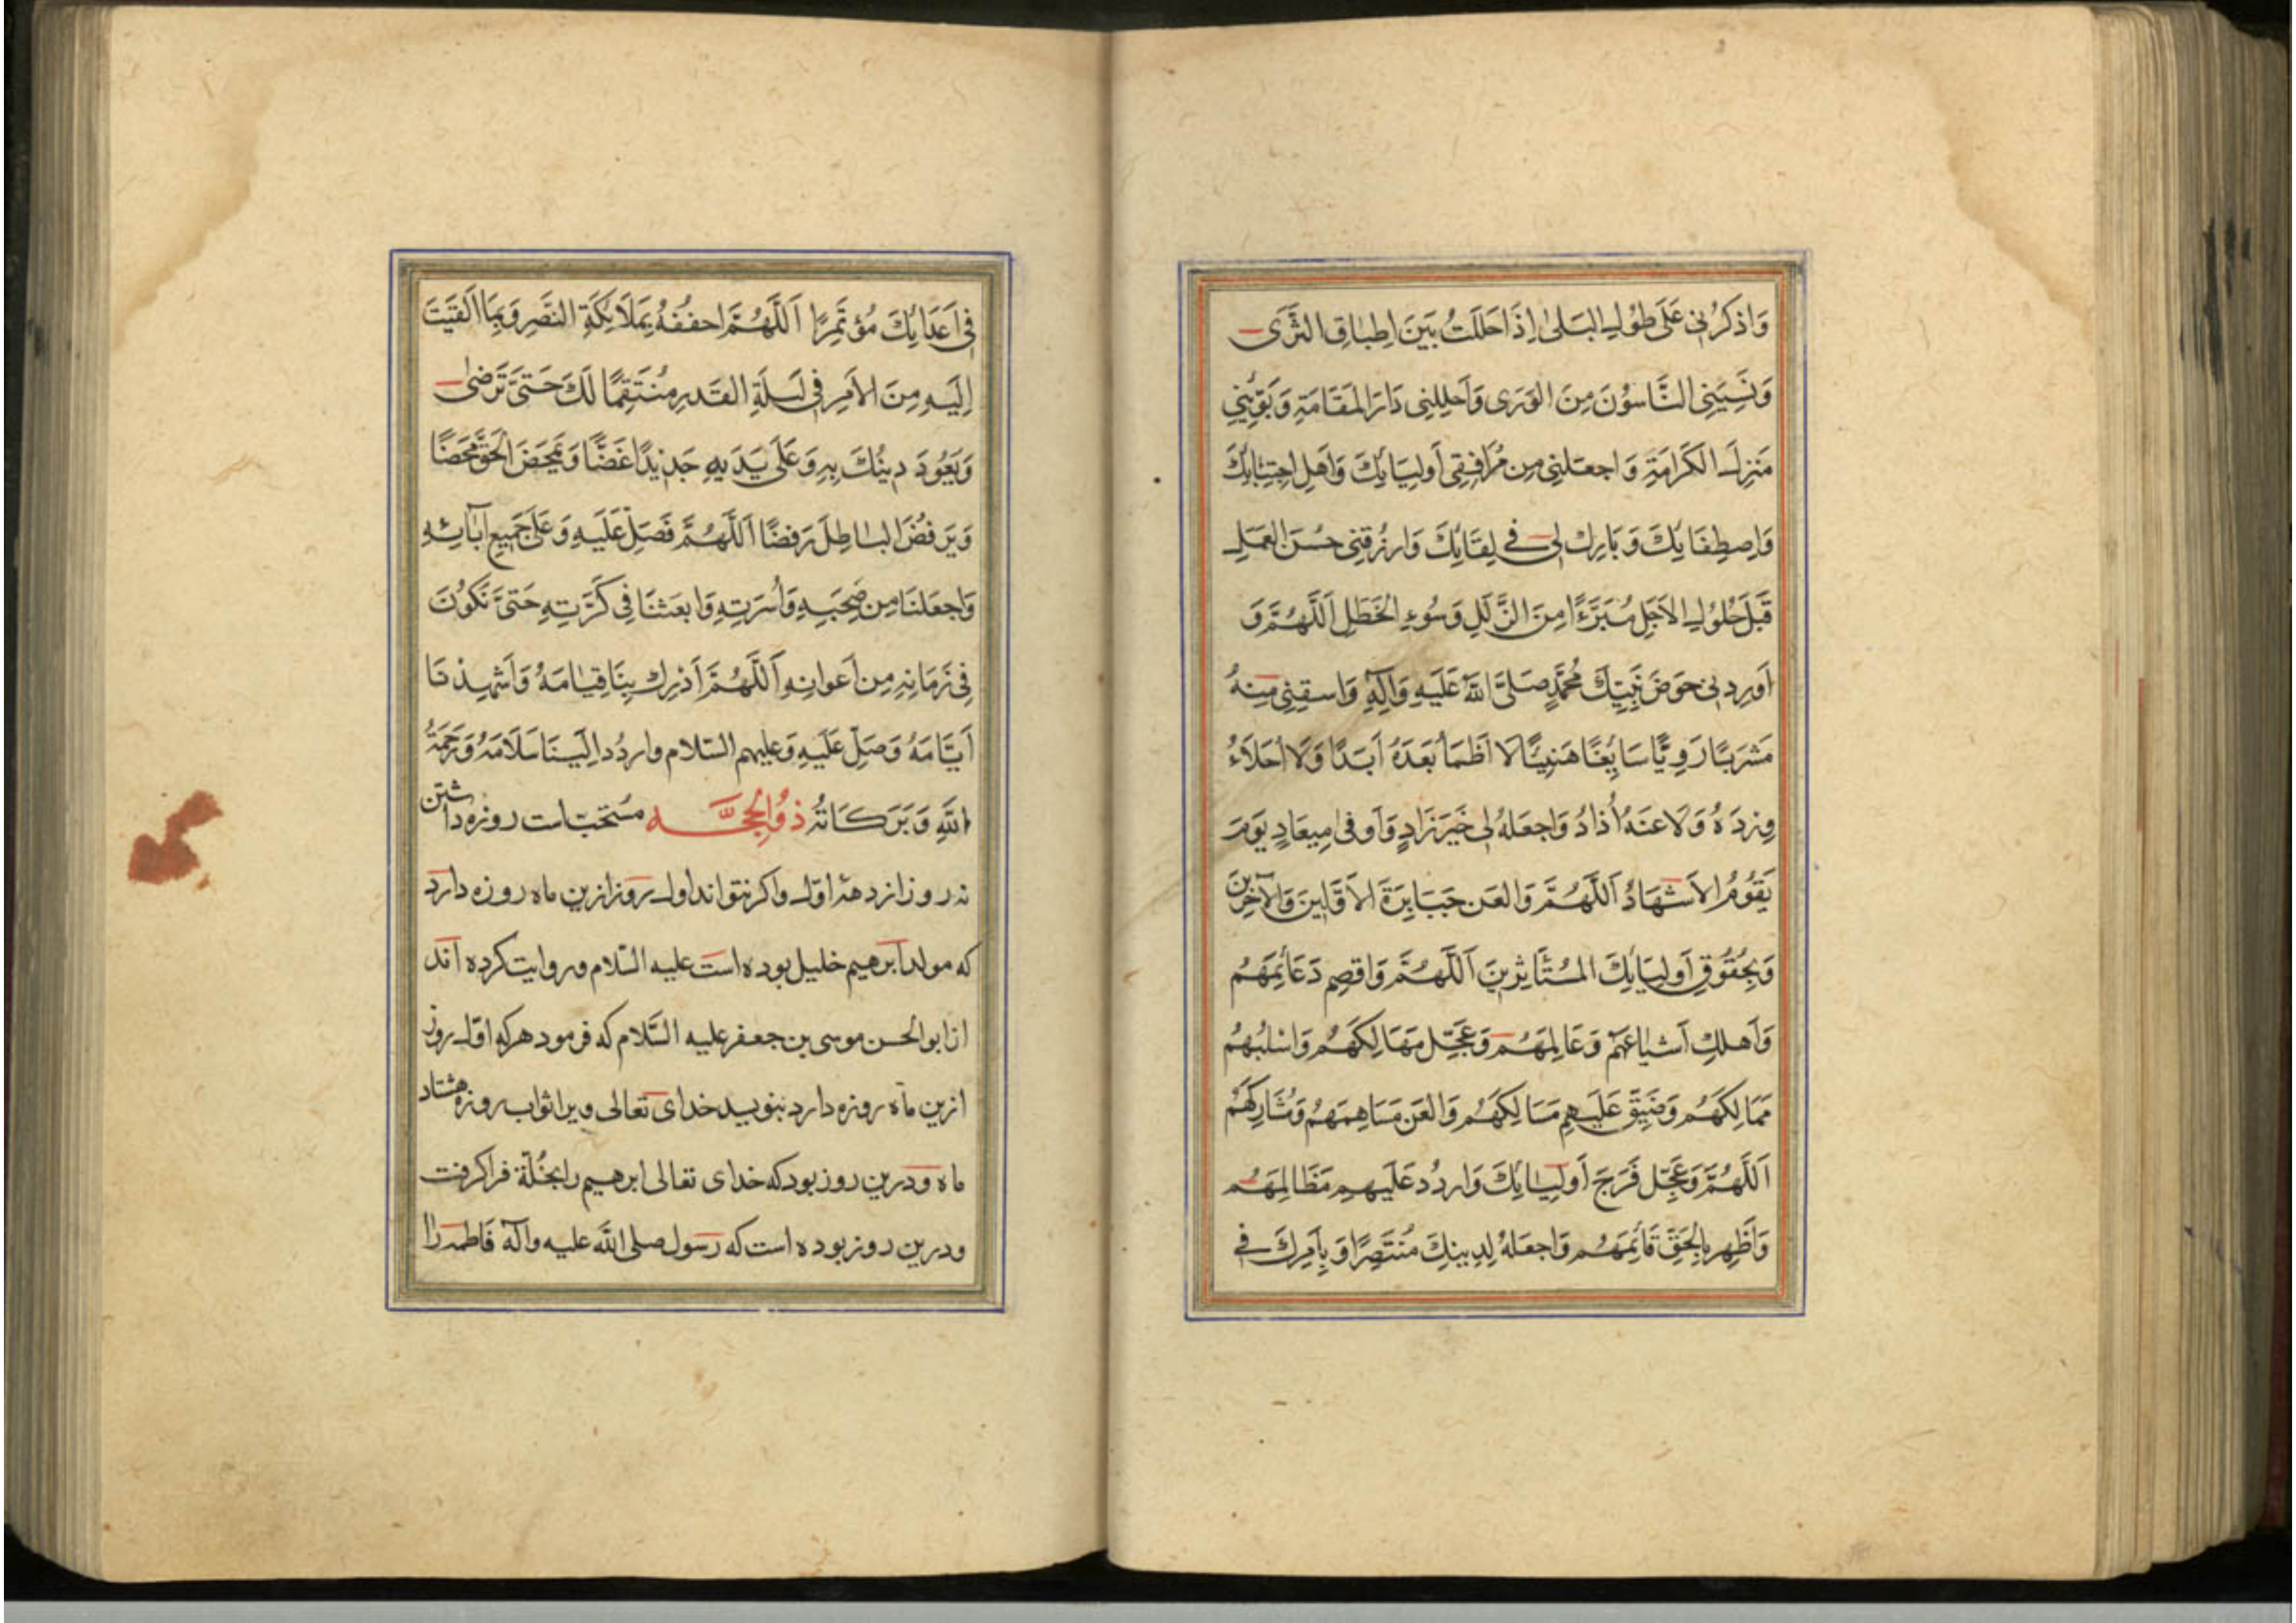 وَاذكُرنِى عَلَى طُولِ البَلىٰ اِذَا حَلَلتُ بَينَ اِطبَاقِ الثَّرَى
وَنَسِيَنِى النَّاسُونَ مِنَ الوَرَى وَاَحلِلنِى دَارَ المُقَامَةِ وَبَوِّئنِي
مَنزِلَ الكَرَامَةِ وَاجعَلنِى مِن مُرَافِقِى اَولِيَائِكَ وَاَهلِ اجتِبَائِكَ
وَاصطِفَائِكَ وَبَارِك لِى فِى لِقَائِكَ وَارزُقنِى حُسنَ العَمَلِ
قَبلَ حُلُولِ الاَجَلِ مُبَرَّءًا مِنَ الزَّلَلِ وَسُوءِ الخَطَلِ اَللَّهُمَّ وَ
اَورِدنِى حَوضَ نَبِيِّكَ مُحَمَّدٍ صَلَّى اللهُ عَلَيهِ وَآلِهِ وَاسقِنِى مِنهُ
مَشرَبًا رَوِيًّا سَايِغًا هَنِيئًا لَا اَظمَأُ بَعدَهُ اَبَدًا وَلَا اُحَلَّاءُ
وِردَهُ وَلَا عَنهُ اُذَادُ وَاجعَلهُ لِى خَيرَ زَادٍ وَاَوفَى مِيعَادٍ يَومَ
يَقُومُ الاَشهَادُ اَللَّهُمَّ وَالعَن جَبَابِرَةَ الاَوَّلِينَ وَالآخِرِينَ
وَبِحُقُوقِ اَولِيَائِكَ المُستَأثِرِينَ اَللَّهُمَّ وَاقصِم دَعَائِمَهُم
وَاَهلِك اَشيَاعَهُم وَعَامِلَهُم وَعَجِّل مَهَالِكَهُم وَاسلُبهُم
مَمَالِكَهُم وَضَيِّق عَلَيهِم مَسَالِكَهُم وَالعَن مُسَاهِمَهُم وَمُشَارِكَهُم
اَللَّهُمَّ وَعَجِّل فَرَجَ اَولِيَائِكَ وَاردُد عَلَيهِم مَظَالِمَهُم
وَاَظهِر بِالحَقِّ قَائِمَهُم وَاجعَلهُ لِدِينِكَ مُنتَصِرًا وَبِاَمرِكَ فِى
فِى اَعدَائِكَ مُؤتَمِرًا اَللَّهُمَّ احفُفهُ بِمَلَائِكَةِ النَّصرِ وَبِمَا اَلقَيتَ
اِلَيهِ مِنَ الاَمرِ فِى لَيلَةِ القَدرِ مُنتَقِمًا لَكَ حَتَّى تَرضىٰ
وَيَعُودَ دِينُكَ بِهِ وَعَلَى يَدَيهِ جَدِيدًا غَضًّا وَيَمحَضَ الحَقَّ مَحضًا
وَيَرفُضَ البَاطِلَ رَفضًا اَللَّهُمَّ فَصَلِّ عَلَيهِ وَعَلَى جَمِيعِ آبَائِهِ
وَاجعَلنَا مِن صَحبِهِ وَاُسرَتِهِ وَابعَثنَا فِى كَرَّتِهِ حَتَّى نَكُونَ
فِى زَمَانِهِ مِن اَعوَانِهِ اَللَّهُمَّ اَدرِك بِنَا قِيَامَهُ وَاَشهِدنَا
اَيَّامَهُ وَصَلِّ عَلَيهِ وَعليهم السّلام واردُد اِلَينَا سَلَامَهُ وَرَحمَةُ
اللهِ وَبَرَكَاتُهُ ذُو الحِجَّه مستحبّاست روزه داشتن
نه روز از دههٔ اوّل و اکر نتواند اول روز ازین ماه روزه دارد
که مولد ابرهیم خلیل بوده است علیه السّلام و روایت کرده اند
از ابو الحسن موسی بن جعفر علیه السَّلام که فرمود هرکه اوّل روز
ازین ماه روزه دارد بنویسد خدای تعالی ویرا ثواب روزه هشتاد
ماه و درین روز بود که خدای تعالی ابرهیم را بخُلّة فرا کرفت
و درین روز بوده است که رسول صلی اللّه علیه وآله فاطمه را